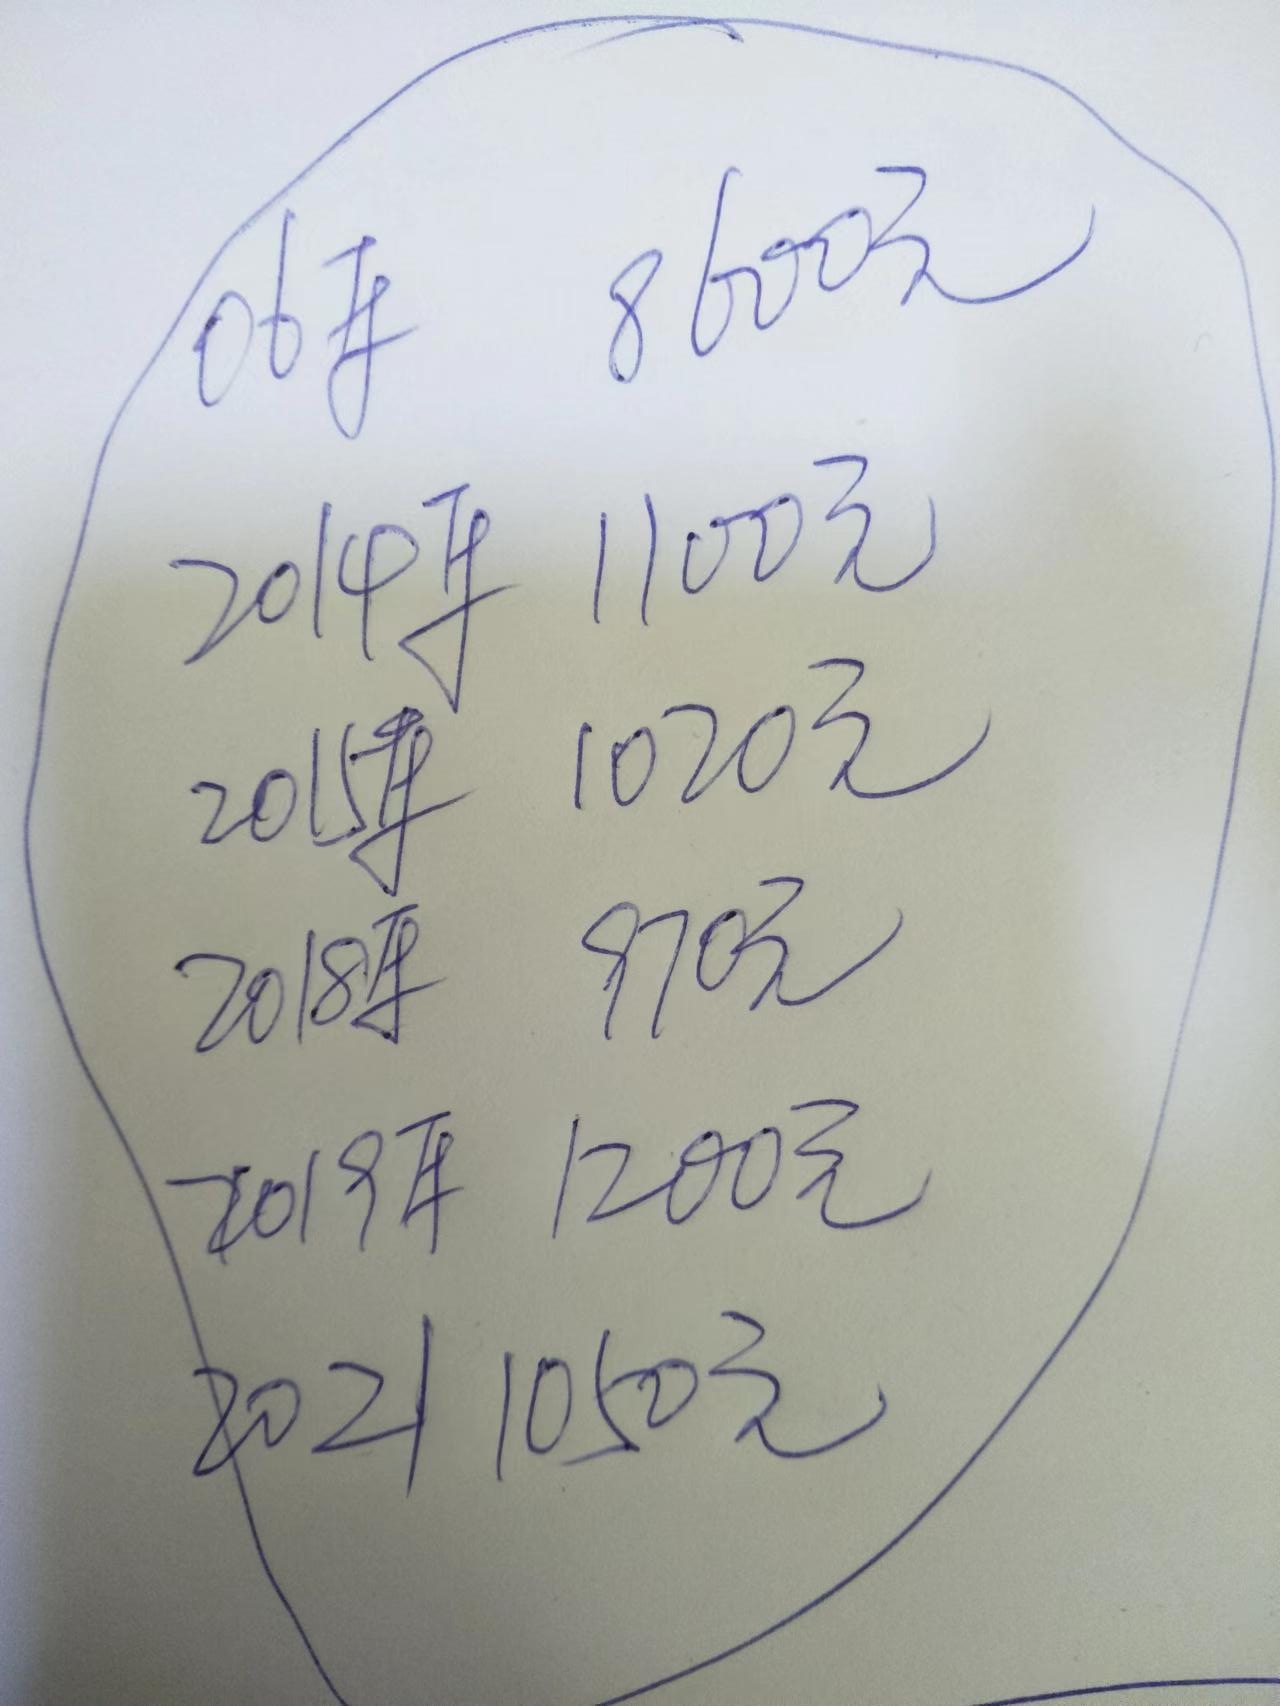 06年 8600元
2014年 1100元
2015年 1020元
2018年 970元
2019年 1200元
2021 1050元